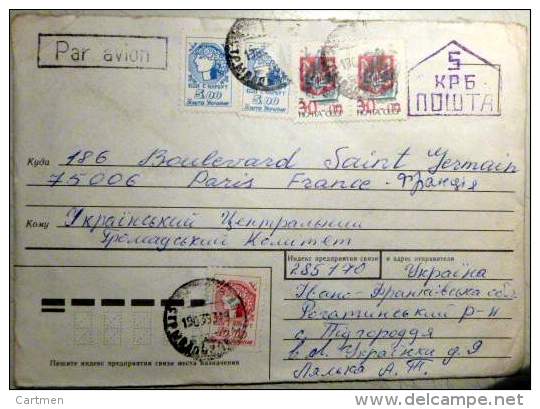 Par avion
5
КРБ
ПОШТА
3.00
Пошта України
3.00
Пошта України
30.00
ПОЧТА СССР
30.00
Куда 186 Boulevard Saint Germain
75006 Paris France - Франція
Кому Український Центральний
Громадський Комітет
Индекс предприятия связи и адрес отправителя
285170 Україна
Івано-Франківська обл
Рогатинський р-н
с. Підгороддя
в. Л. Українки д. 9
Лялька А. Т.
Пишите индекс предприятия связи места назначения
© Cartmen
delcampe.net